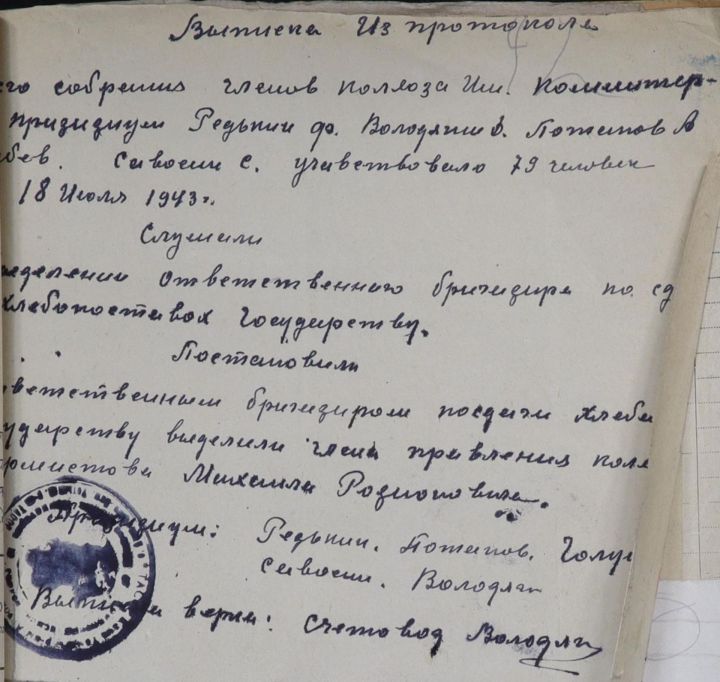 Выписка Из протокола
его собрения членов колхоза Им. Коминтер-
призидиум Редькин ф. Володягин д. Потапов А
бев. Савосин С. учавствовало 79 человек
18 Июля 1943 г.
Слушали
ределении ответственного бригадира по сд
хлебопоставок Государству.
Постановили
ветственным бригадиром посдачи хлеба
ударству выделили члена правления кол
Михаила Родионовича.
Призидиум: Редькин. Потапов. Голуб
Савосин. Володягин
Выписка верна: Счетовод Володяг